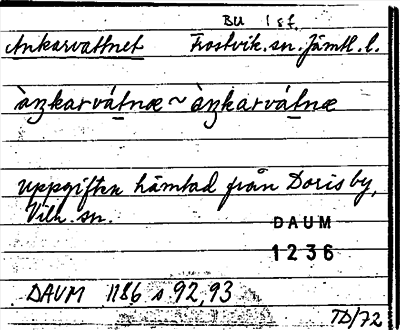 BU 1 st
Ankarvattnet Frostvik. sn. Jämtl. l.
àŋkarvátnæ ~ àŋkarvátnæ
uppgiften hämtad från Dorisby,
Vilh. sn.
DAUM
1236
DAUM 1186 s 92, 93
TD/72